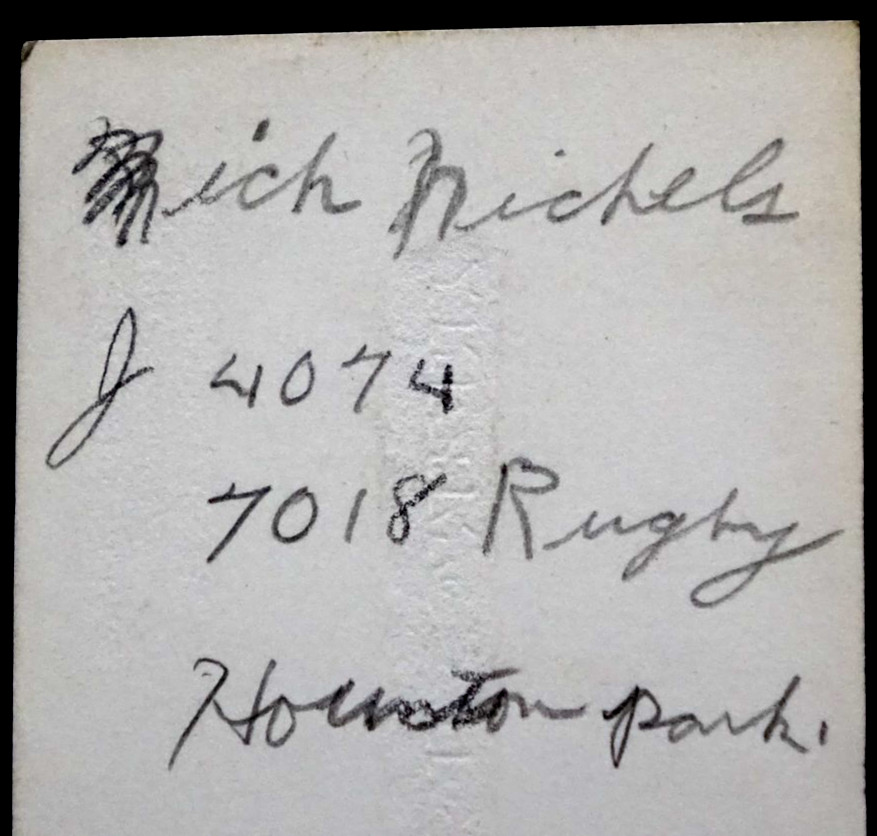 Nich Nichels
J 4074
7018 Rugby
Houston park.